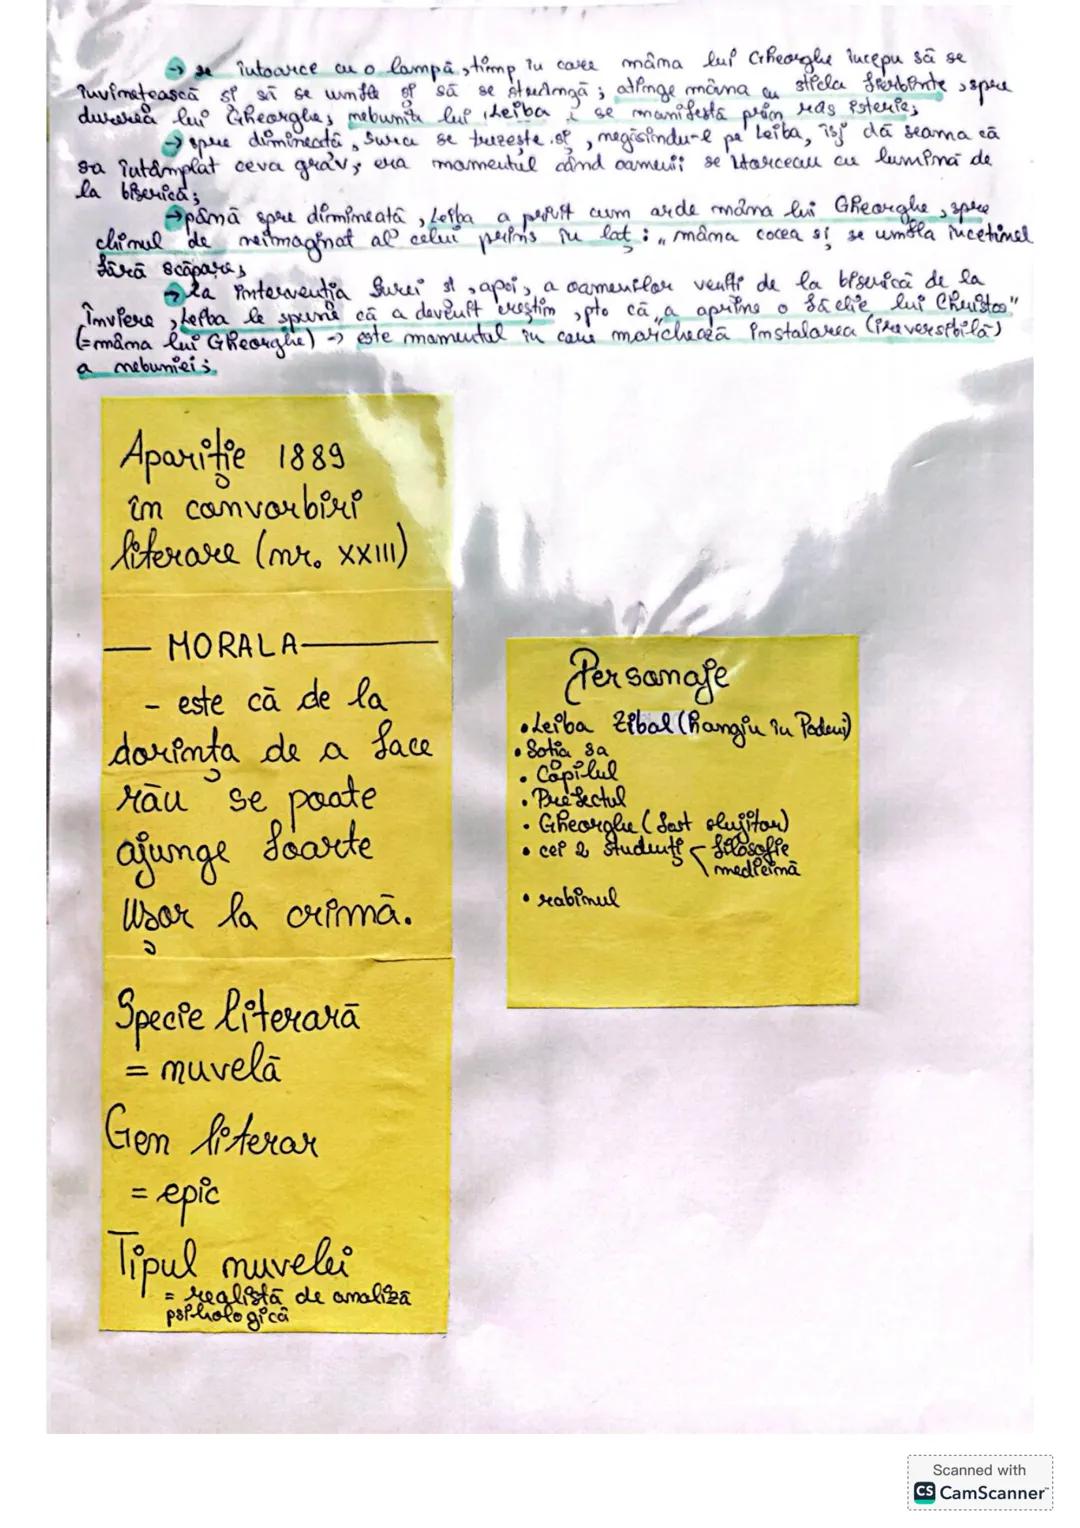 → se întoarce cu o lampă, timp în care mâna lui Gheorghe începu să se
învinețească și să se umfle și să se strângă; atinge mâna cu sticla fierbinte, spre
durerea lui Gheorghe; nebunia lui Leiba i se manifestă prin râs isteric;
→ spre dimineață, Sura se trezește și, negăsindu-l pe Leiba, își dă seama că
s-a întâmplat ceva grav; era momentul când oamenii se întorceau cu lumină de
la biserică;
→ până spre dimineață, Leiba a privit cum arde mâna lui Gheorghe, spre
chinul de neimaginat al celui prins în laț: „mâna cocea și se umfla încetinel
fără scăpare;
→ la intervenția Surei și, apoi, a oamenilor veniți de la biserică de la
Înviere, Leiba le spune că a devenit creștin, ptr că „a aprins o făclie lui Christos"
(=mâna lui Gheorghe) → este momentul în care marchează instalarea (ireversibilă)
a nebuniei;
Apariție 1889
în convorbiri
literare (nr. XXIII)
— MORALA —
- este că de la
dorința de a face
rău se poate
ajunge foarte
ușor la crimă.
Specie literară
= nuvelă
Gen literar
= epic
Tipul nuvelei
= realistă de analiză
psihologică
Personaje
• Leiba Zibal (hangiu în Podeni)
• Soția sa
• Copilul
• Prefectul
• Gheorghe (fost slujitor)
• cei 2 studenți filosofie
medicină
• rabinul
Scanned with
CS CamScanner